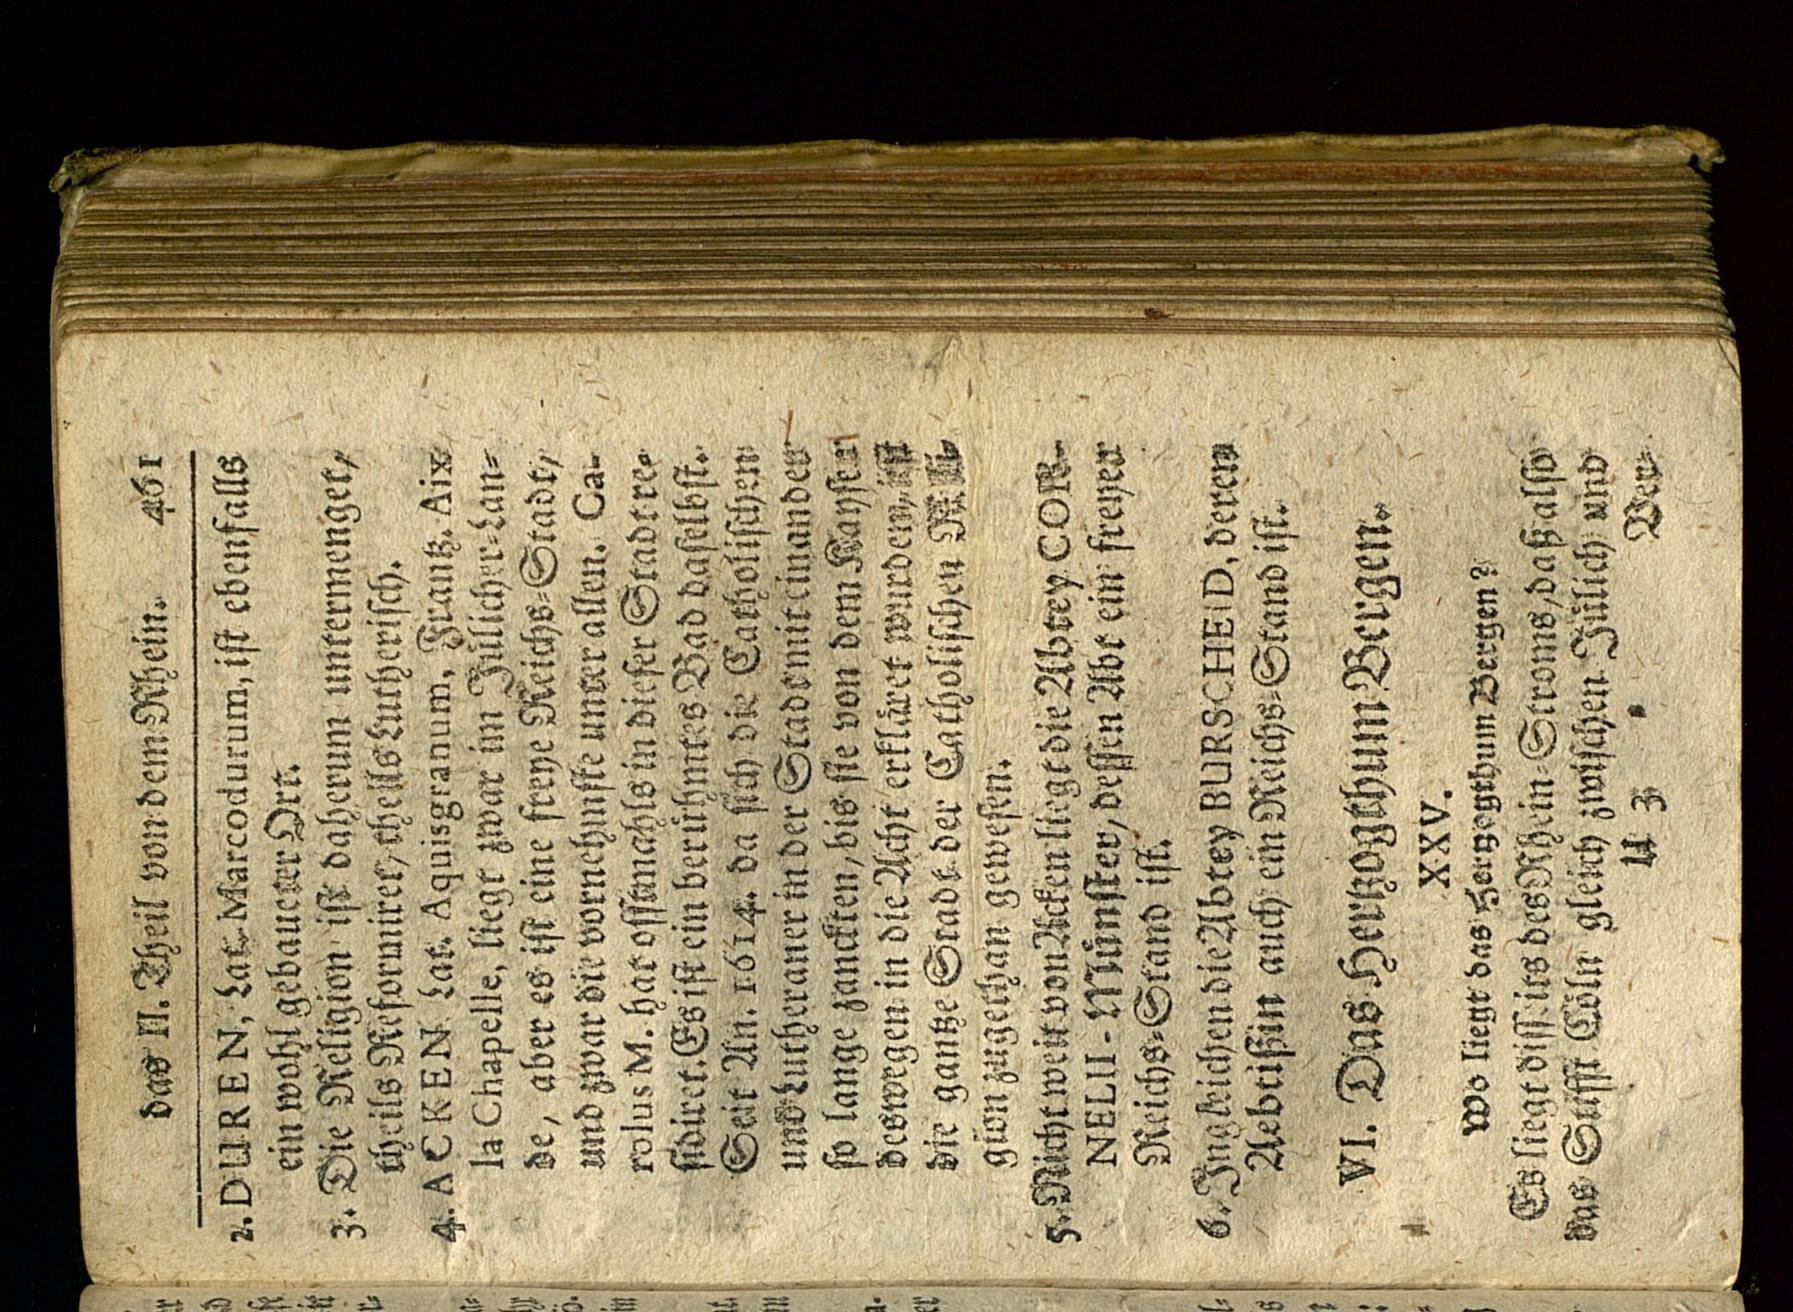 das II. Theil von dem Rhein. 461
2. DUREN, Lat. Marcodurum, ist ebenfalls
ein wohl gebaueter Ort.
3. Die Religion ist daherum untermenget,
theils Reformiret, theils Lutherisch.
4. ACKEN Lat. Aquisgranum, Frantz. Aix
la Chapelle, liegt zwar im Jülicher-Lan-
de, aber es ist eine freye Reichs-Stadt,
und zwar die vornehmste unter allen. Ca-
rolus M. hat offtmahls in dieser Stadt re-
sidiret. Es ist ein berühmtes Bad daselbst.
Seit An. 1614. da sich die Catholischen
und Lutheraner in der Stadt mit einander
so lange zanckten, bis sie von dem Kayser
deswegen in die Acht erkläret wurden, ist
die gantze Stadt der Catholischen Reli-
gion zugethan gewesen.
5. Nicht weit von Acken liegt die Abtey COR-
NELII-Münster, dessen Abt ein freyer
Reichs-Stand ist.
6. Ingleichen die Abtey BURSCHEID, deren
Aebtißin auch ein Reichs-Stand ist.
VI. Das Hertzogthum Bergen.
XXV.
Wo liegt das Hertzogthum Bergen?
Es liegt disseits des Rhein-Stroms, daß also
das Stifft Cöln gleich zwischen Jülich und
U 3 Ber-